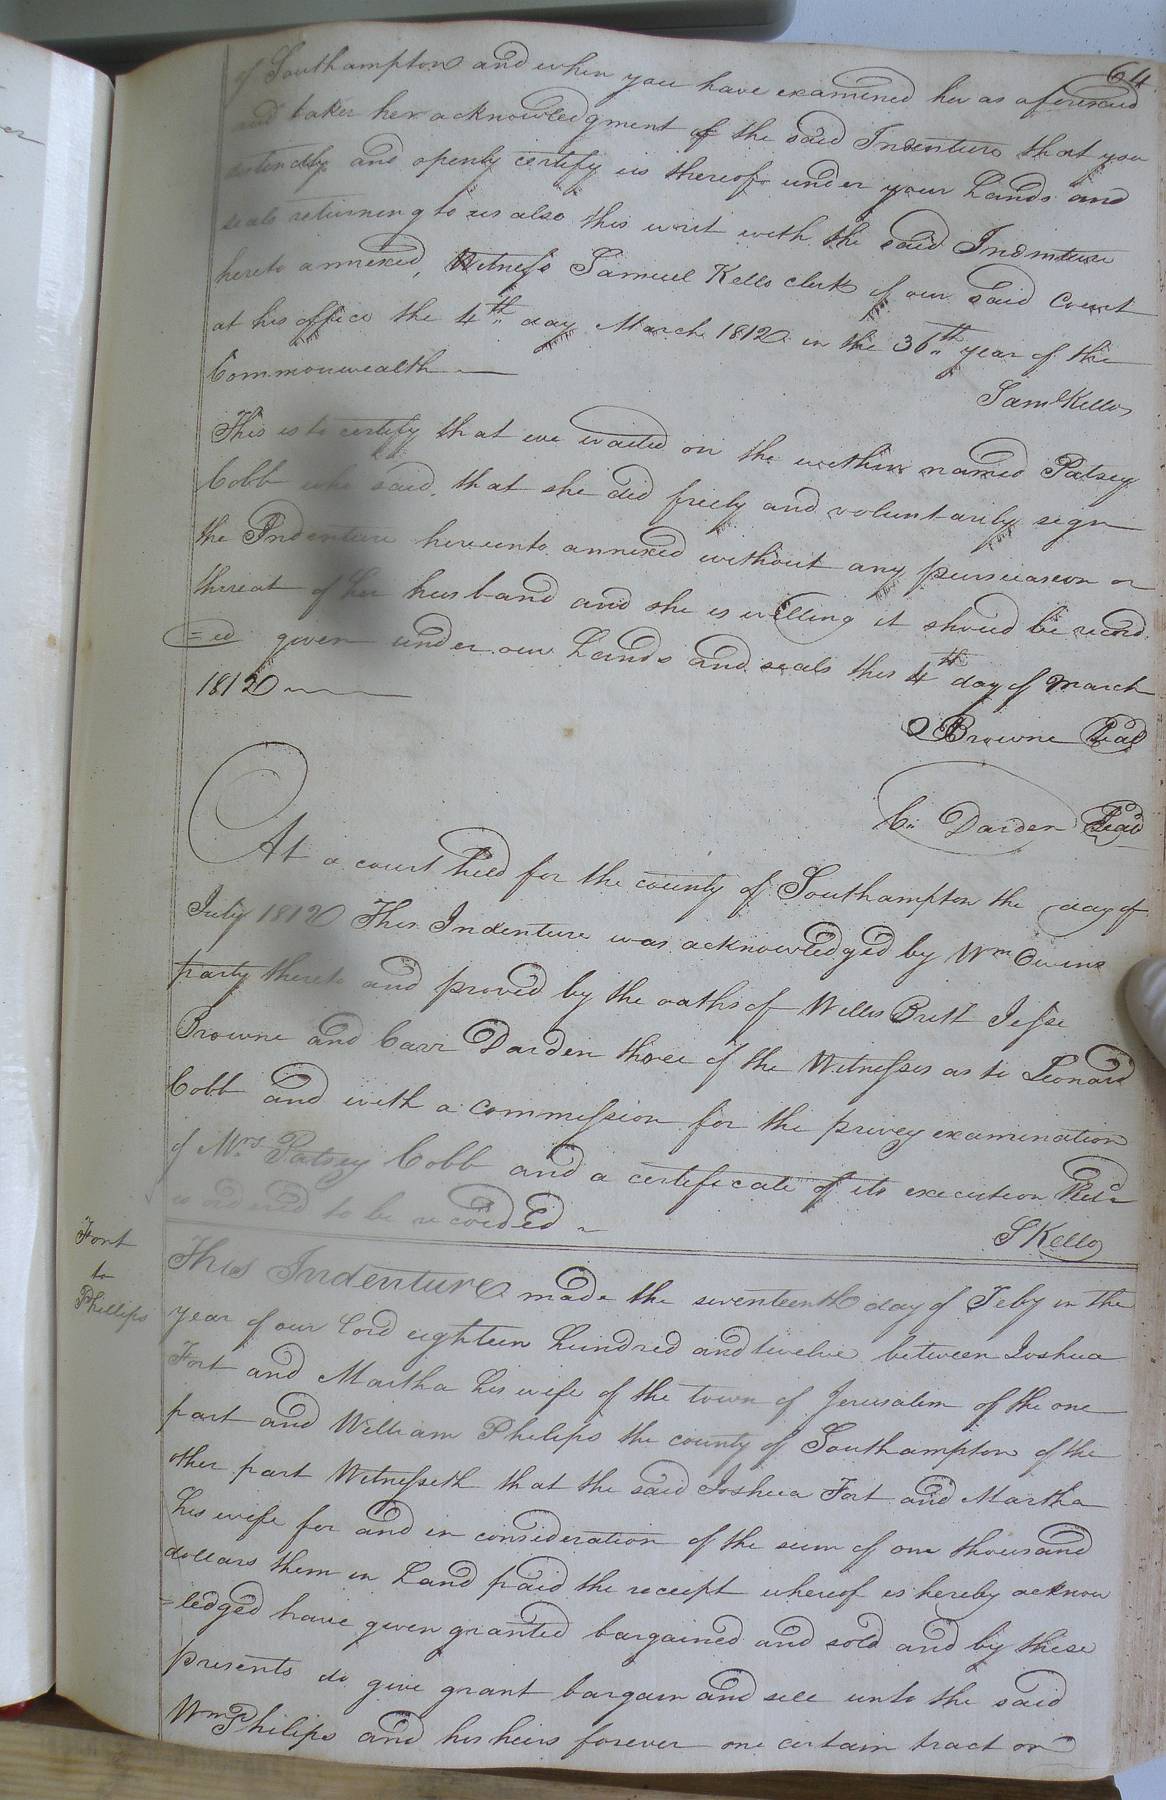 64
of Southampton and when you have examined her as aforesaid
and taken her acknowledgment of the said Indenture that you
distinctly and openly certify us thereof under your Hands and
seals returning to us also this writ with the said Indenture
hereto annexed, Witness Samuel Kello clerk of our said Court
at his office the 4th day March 1812 in the 36th year of the
Commonwealth
Saml Kello
This is to certify that we waited on the within named Patsey
Cobb who said, that she did freely and voluntarily sign
the Indenture hereunto annexed without any persuasion or
threat of her husband and she is willing it should be record
=ed given under our Hands and seals this 4th day of March
1812
J Browne Seal
C: Darden Seal
At a court held for the county of Southampton the day of
July 1812 This Indenture was acknowledged by Wm Owens
party thereto and proved by the oaths of Willis Britt Jesse
Browne and Carr Darden three of the Witnesses as to Leonard
Cobb and with a commission for the privey examination
of Mrs Patsey Cobb and a certificate of its execution
is ordered to be recorded
S Kello
Fort
to
Phillips
This Indenture made the seventeenth day of Feby in the
year of our Lord eighteen Hundred and twelve between Joshua
Fort and Martha his wife of the town of Jerusalem of the one
part and William Philips the county of Southampton of the
other part Witnesseth that the said Joshua Fort and Martha
his wife for and in consideration of the sum of one thousand
dollars them in Hand paid the receipt whereof is hereby acknow
=ledged have given granted bargained and sold and by these
presents do give grant bargain and sell unto the said
Wm Philips and his heirs forever one certain tract or